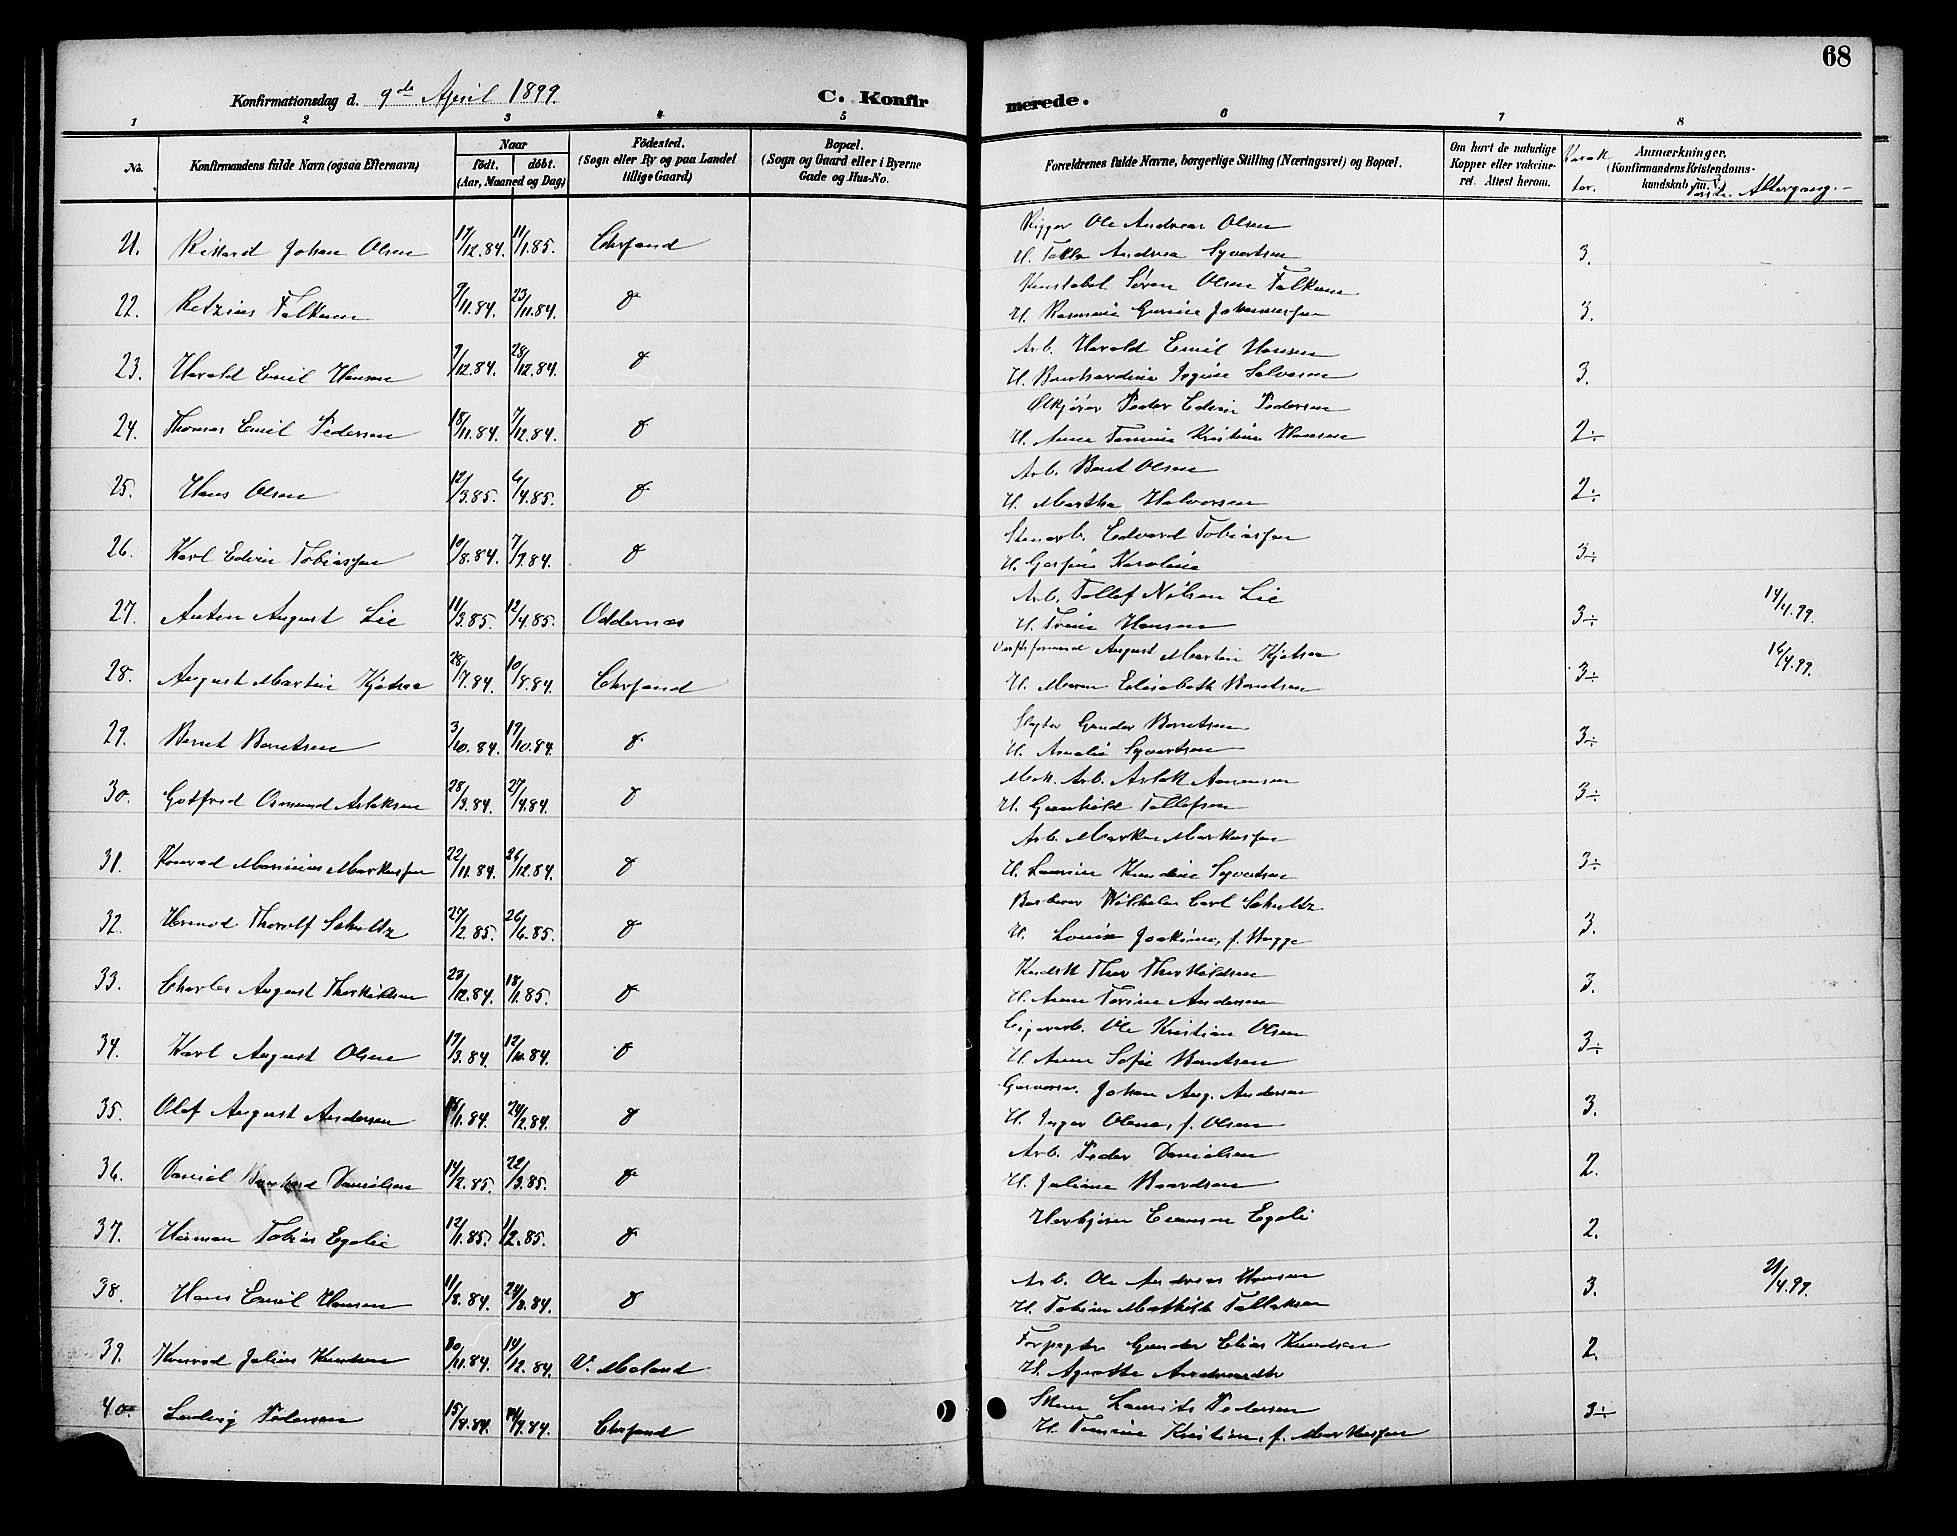 68
Konfirmationsdag d. 9de April 1899. C. Konfirmerede.
1 2 3 4 5 6 7 8
No. Konfirmandens fulde Navn (ogsaa Efternavn) Naar født. døbt. (Aar, Maaned og Dag) Fødested. (Sogn eller By og paa Landet tillige Gaard) Bopæl. (Sogn og Gaard eller i Byerne Gade og Hus-No. Forældrenes fulde Navne, borgerlige Stilling (Næringsvei) og Bopæl. Om havt de naturlige Kopper eller vakcineret. Attest herom. Karakter. Anmærkninger, (Konfirmandens Kristendomskundskab m. V. Første Altergang.-
21. Rikard Johan Olsen 17/12.84. 11/1.85. Chrsand Rigger Ole Andreas Olsen
H. Tekla Andrea Syvertsen 3.
22. Retzius Falkum 9/11.84. 23/11.84. do Konstabel Søren Olsen Falkum
H. Rasmine Gurine Johannessen 3.
23. Harald Emil Hansen 9/12.84. 28/12.84. do Arb. Harald Emil Hansen
H. Bernhardine Salvesen 3.
24. Thomas Emil Pedersen 18/11.84. 7/12.84. do Ølkjører Peder Edvin Pedersen
H. Anne Tomine Kristine Hansen 2÷
25. Hans Olsen 12/3.85. 6/4.85. do Arb. Bent Olsen
H. Martha Halvorsen 2÷
26. Karl Edvin Tobiassen 10/8.84. 7/9.84. do Stenarb. Edvard Tobiassen
H. Karoline 3÷
27. Anton August Lie 11/3.85. 12/4.85. Oddernæs Arb. Tollef Nilsen Lie
H. Trine Hansen 3÷ 14/4.99.
28. August Martin Kjøstsaa 28/7.84. 10/8.84. Chrsand Værftsformand August Martin
H. Maren Elisabeth Berntsen 3÷ 16/4.99.
29. Bernt Berntsen 3/10.84. 19/10.84. do Slagter Gunder Berntsen
H. Amalie Syvertsen 3÷
30. Gotfred Osmund Aslaksen 28/3.84. 27/4.84. do Mek. Arb. Aslak Aanensen
H. Gunhild Tollefsen 3÷
31. Konrad Marinius Markussen 22/11.84. 26/12.84. do Arb. Markus Markussen
H. Laurine Kundine Syvertsen 3÷
32. Hermod Thorolf Schultz 27/2.85. 26/6.85. do Barberer Wilhelm Carl Schultz
H. Lovise Joakime, f. Bugge 3.
33. Charles August Therkildsen 23/12.84. 18/1.85. do Kudsk Ther Therkildsen
H. Anne Torine Andersen 3.
34. Karl August Olsen 17/3.84. 12/10.84. do Cigararb. Ole Kristian Olsen
H. Anne Sofie Berntsen 3÷
35. Olaf August Andersen 15/1.84. 24/2.84. do Johan Aug. Andersen
H. Inger Olene, f. Olsen 3.
36. Daniel Bernhard Danielsen 14/2.85. 22/3.85. do Arb. Peder Danielsen
H. Juliane Baardsen 2.
37. Herman Tobias Egelie 12/1.85. 1/2.85. do Egeli 2.
38. Hans Emil Hansen 11/3.84. 24/3.84. do Arb. Ole Andreas Hansen
H. Tobine Mathilde Tallaksen 3. 21/4.99.
39. Konrad Julius Knudsen 30/11.84. 14/12.84. V. Moland Forpagter Gunder Elias Knudsen
H. Agnethe 2.
40. Ludvig Pedersen 15/8.84. 14/9.84. Chrsand Laurits Pedersen
H. Tomine Kristine, f. Markussen 3÷